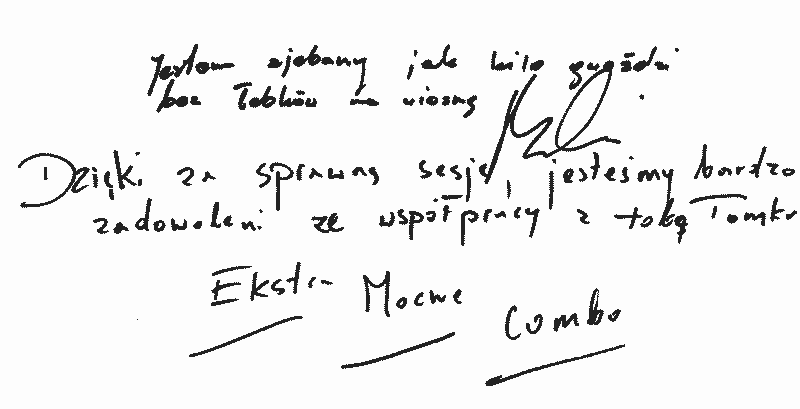 Jestem zjebany jak kilo gwoździ
bez łebków na wiosnę
Dzięki za sprawną sesję, jesteśmy bardzo
zadowoleni ze współpracy z tobą Tomku
Ekstra Mocne Combo